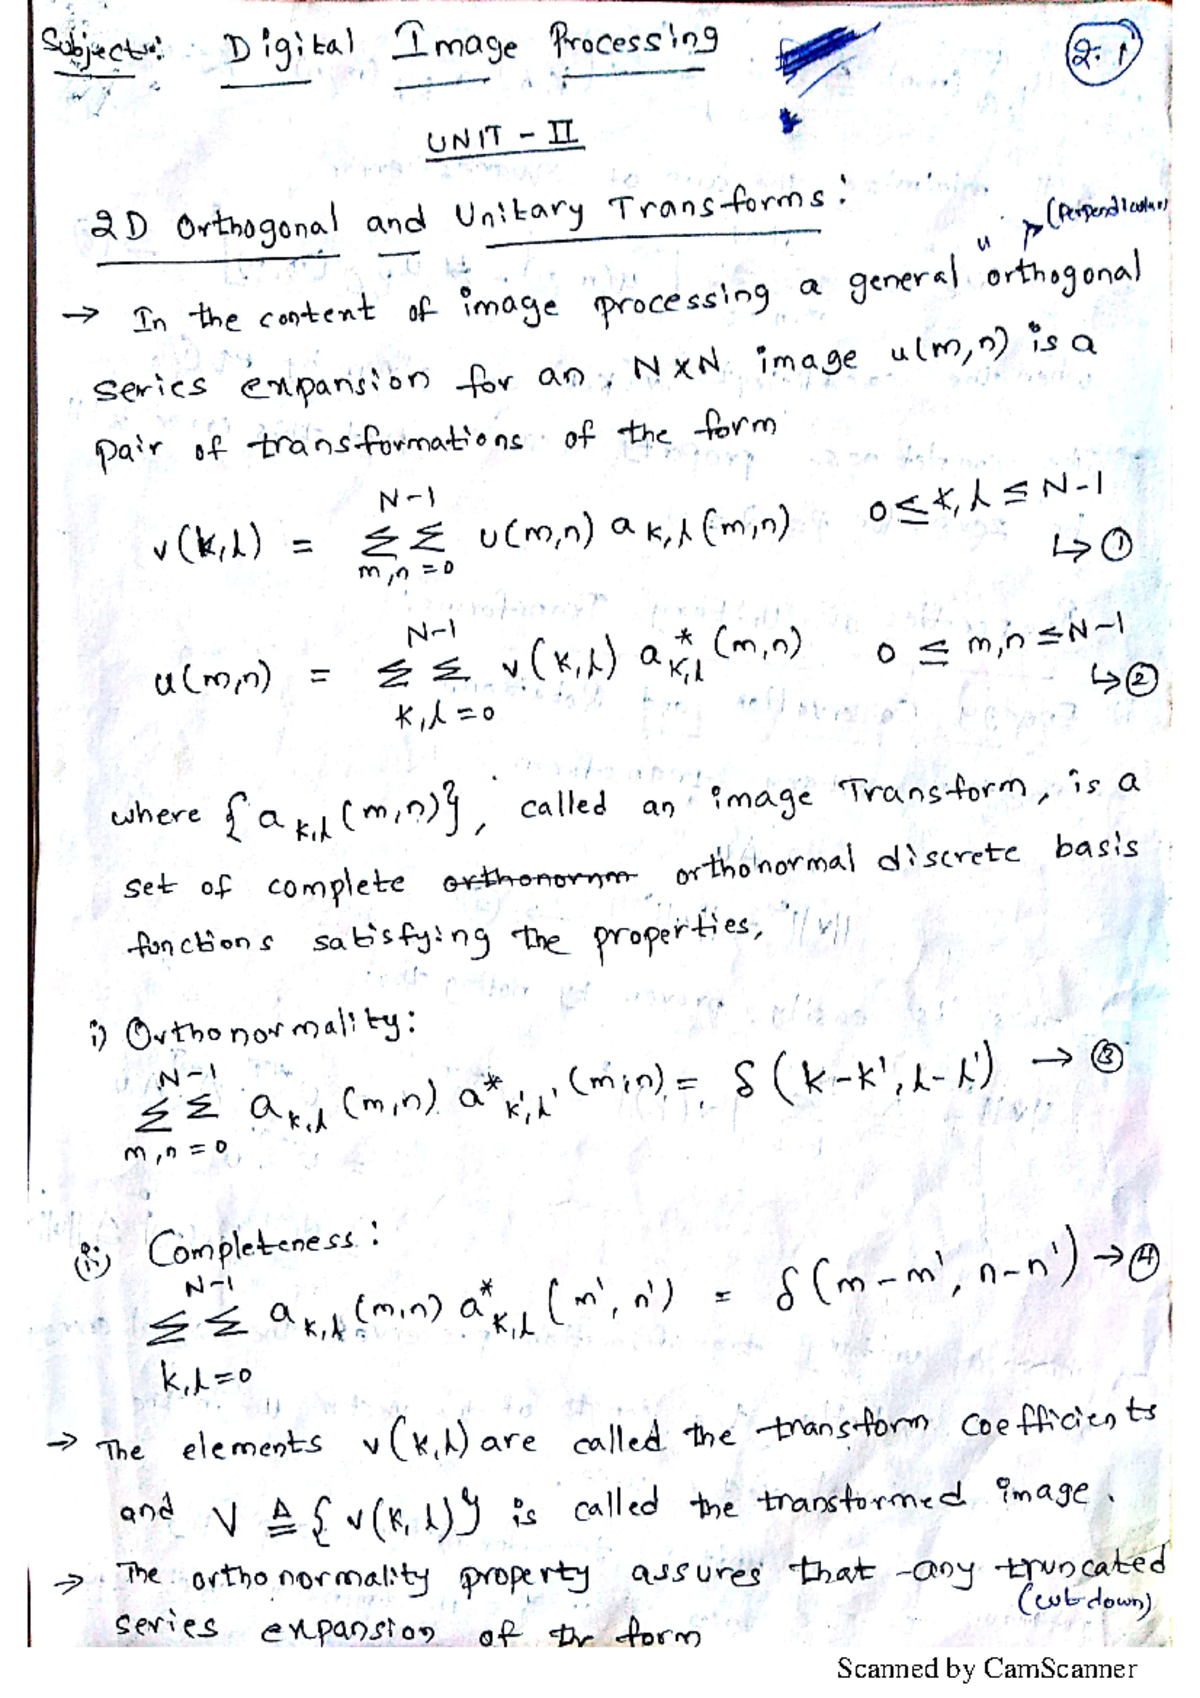 Subject: Digital Image Processing
2.1
UNIT - II
2D Orthogonal and Unitary Transforms:
(Perpendicular)
→ In the content of image processing a general "orthogonal
series expansion for an N×N image u(m,n) is a
pair of transformations of the form
v(k,l) = N-1 ΣΣ m,n=0 u(m,n) a k,l (m,n) 0≤k,l≤N-1
↳ ①
u(m,n) = N-1 ΣΣ k,l=0 v(k,l) a* k,l (m,n) 0≤m,n≤N-1
↳ ②
where {a k,l (m,n)}, called an image Transform, is a
set of complete orthonorm orthonormal discrete basis
functions satisfying the properties,
i) Orthonormality:
N-1 ΣΣ m,n=0 a k,l (m,n) a* k',l' (m,n) = δ(k-k', l-l') → ③
ii) Completeness:
N-1 ΣΣ k,l=0 a k,l (m,n) a* k,l (m',n') = δ(m-m', n-n') → ④
→ The elements v(k,l) are called the transform coefficients
and V ≜ {v(k,l)} is called the transformed image.
→ The orthonormality property assures that any truncated
(cut down)
series expansion of the form
Scanned by CamScanner